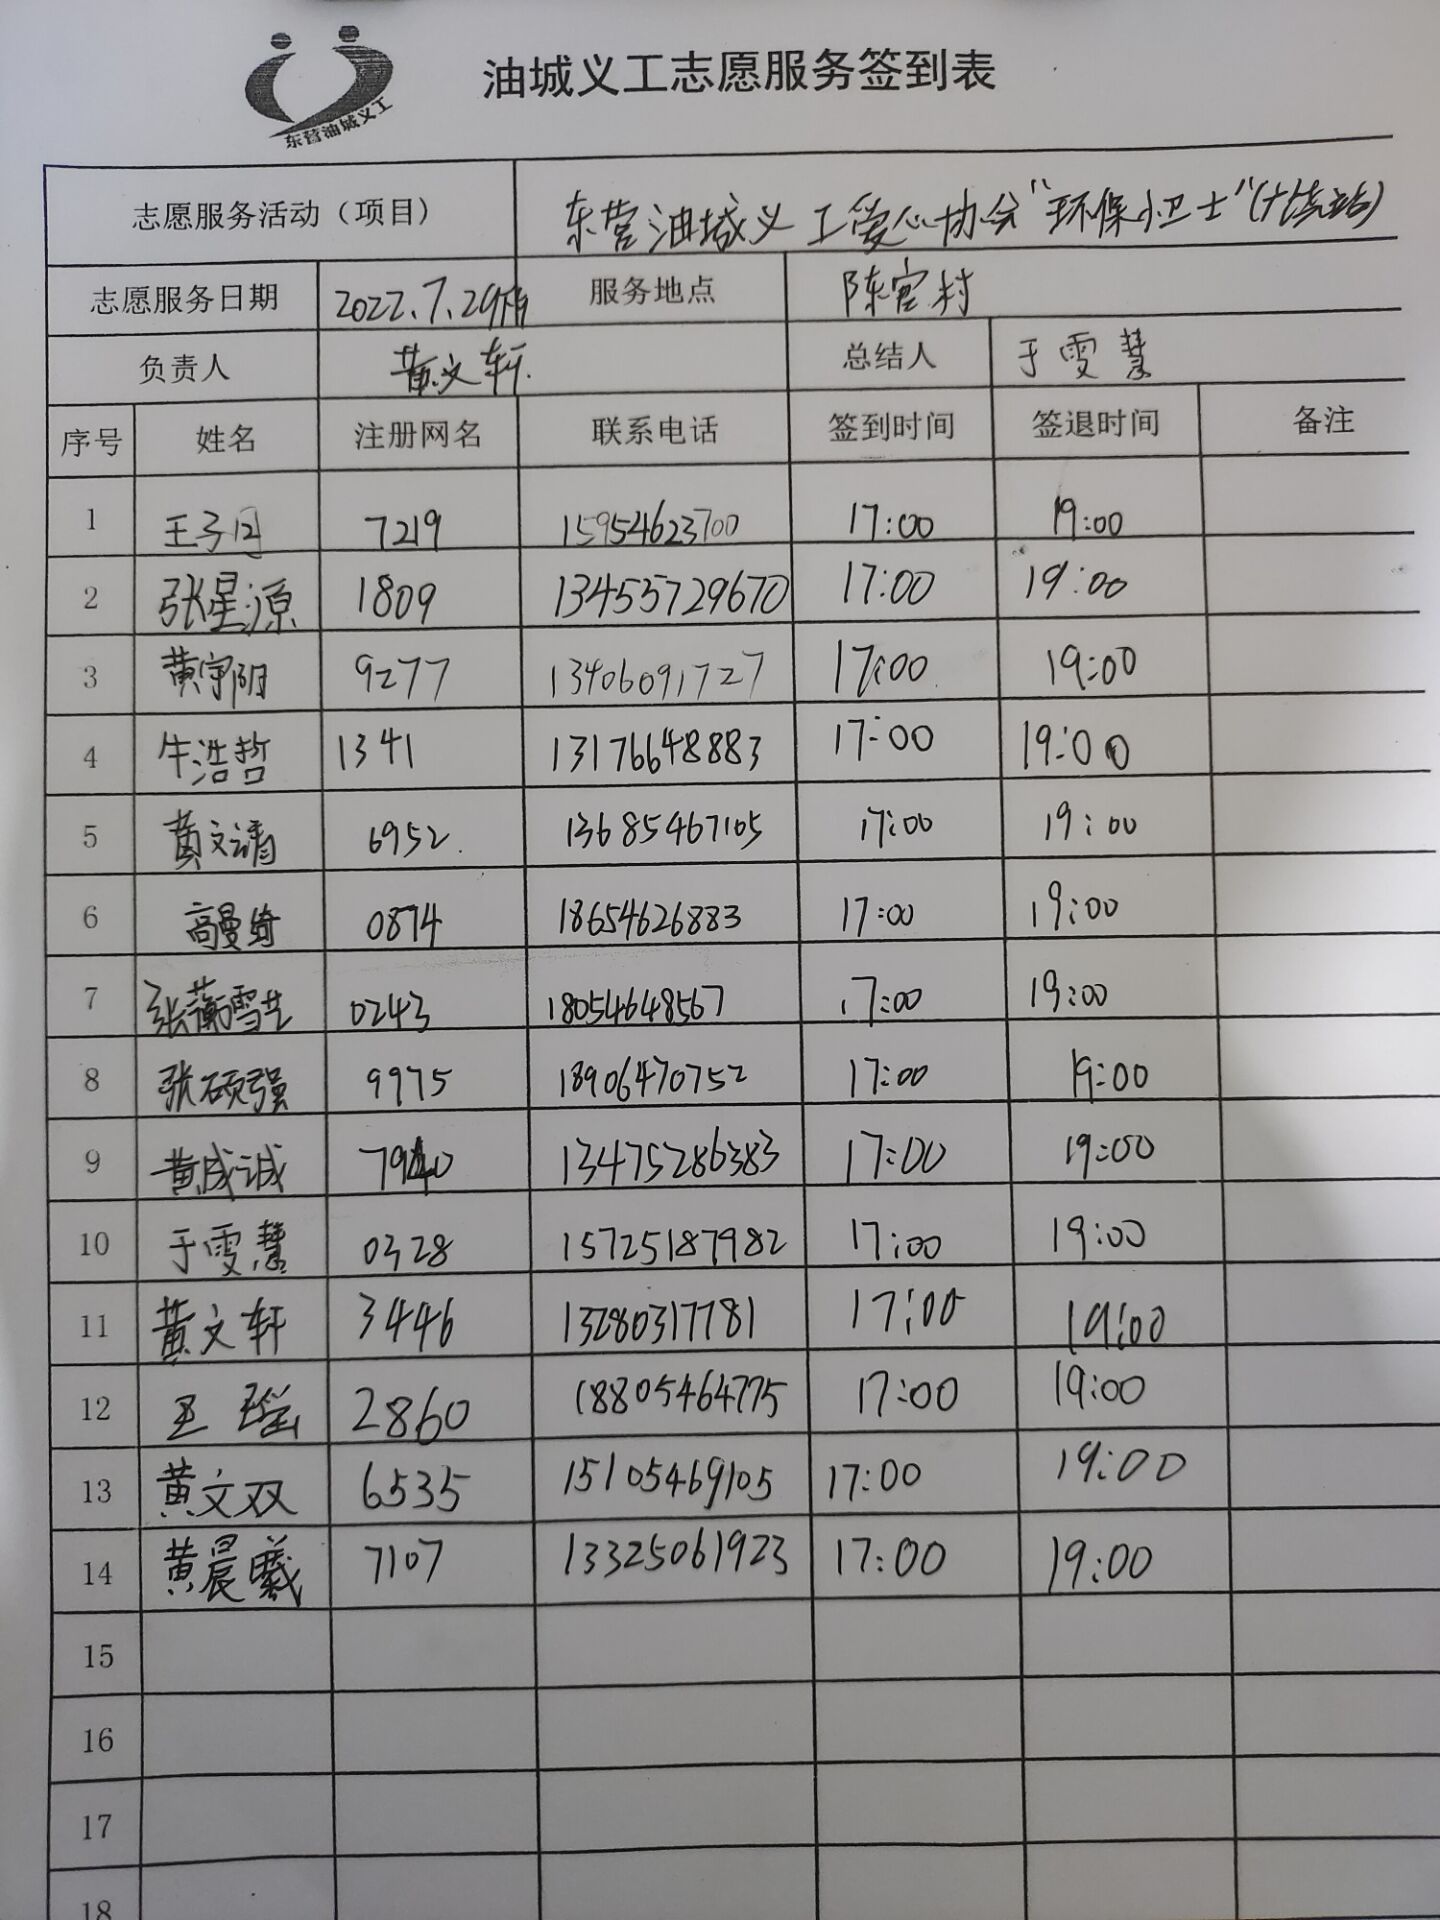 东营油城义工
油城义工志愿服务签到表
志愿服务活动（项目） 东营油城义工爱心协会“环保小卫士”
志愿服务日期 2022.7.29 服务地点 陈官村
负责人 黄文轩 总结人 于雯慧
序号 姓名 注册网名 联系电话 签到时间 签退时间 备注
1 王子 7219 15954623700 17:00 19:00
2 张星源 1809 134553729670 17:00 19:00
3 黄宇阳 9277 13406091727 17:00 19:00
4 牛浩哲 1341 13176648883 17:00 19:00
5 黄文靖 6952 13685467105 17:00 19:00
6 高曼绮 0874 18654626883 17:00 19:00
7 张蘅雪芝 0243 18054648567 17:00 19:00
8 张硕强 9975 18906470752 17:00 19:00
9 黄成诚 13475286383 17:00 19:00
10 于雯慧 0328 15725187982 17:00 19:00
11 黄文轩 3446 13280317781 17:00 19:00
12 王瑶 2860 18805464775 17:00 19:00
13 黄文双 6535 15105469105 17:00 19:00
14 黄晨曦 7107 13325061923 17:00 19:00
15
16
17
18